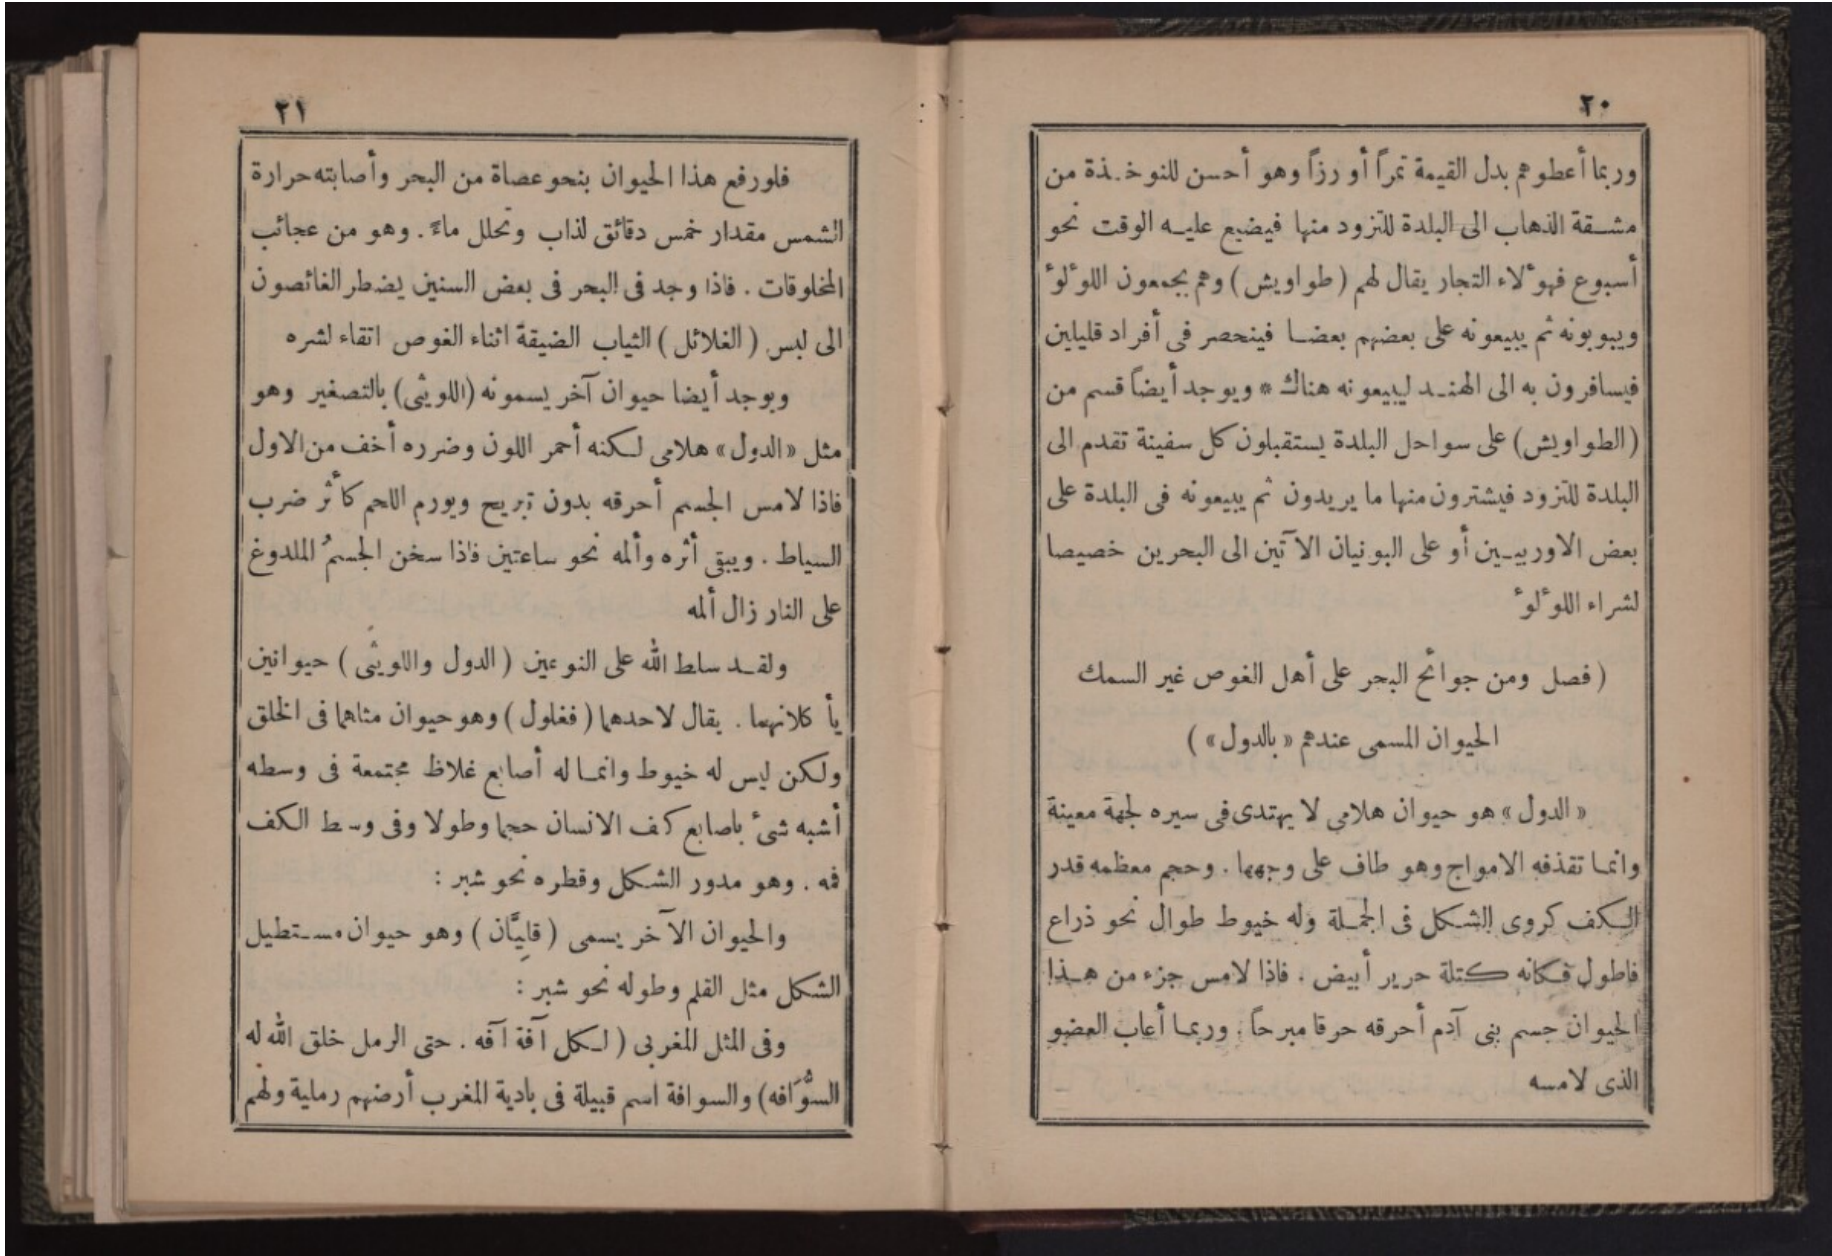 ٢٠
وربما أعطوهم بدل القيمة تمراً أو رزاً وهو أحسن للنوخذة من
مشقة الذهاب الى البلدة للتزود منها فيضيع عليه الوقت نحو
أسبوع فهؤلاء التجار يقال لهم (طواويش) وهم يجمعون اللؤلؤ
ويبوبونه ثم يبيعونه على بعضهم بعضا فينحصر فى أفراد قليلين
فيسافرون به الى الهند ليبيعونه هناك * ويوجد أيضاً قسم من
(الطواويش) على سواحل البلدة يستقبلون كل سفينة تقدم الى
البلدة للتزود فيشترون منها ما يريدون ثم يبيعونه فى البلدة على
بعض الاوربيين أو على البونيان الآتين الى البحرين خصيصا
لشراء اللؤلؤ
(فصل ومن جوائح البحر على أهل الغوص غير السمك
الحيوان المسمى عندهم «بالدول»)
«الدول» هو حيوان هلامى لا يهتدى فى سيره لجهة معينة
وانما تقذفه الامواج وهو طاف على وجهها . وحجم معظمه قدر
الكف كروى الشكل فى الجملة وله خيوط طوال نحو ذراع
فاطول فكانه كتلة حرير أبيض . فاذا لامس جزء من هذا
الحيوان جسم بنى آدم أحرقه حرقا مبرحاً . وربما أعاب العضو
الذى لامسه
٢١
فلو رفع هذا الحيوان بنحو عصاة من البحر وأصابته حرارة
الشمس مقدار خمس دقائق لذاب وتحلل ماءً . وهو من عجائب
المخلوقات . فاذا وجد فى البحر فى بعض السنين يضطر الغائصون
الى لبس (الغلائل) الثياب الضيقة اثناء الغوص اتقاء لشره
ويوجد أيضا حيوان آخر يسمونه (اللويثى) بالتصغير وهو
مثل «الدول» هلامى لكنه أحمر اللون وضرره أخف من الاول
فاذا لامس الجسم أحرقه بدون تبريح ويورم اللحم كأثر ضرب
السياط . ويبقى أثره وألمه نحو ساعتين فاذا سخن الجسمُ الملدوغ
على النار زال ألمه
ولقد سلط الله على النوعين (الدول واللويثى) حيوانين
يأكلانهما . يقال لاحدهما (فغلول) وهو حيوان مثلهما فى الخلق
ولكن ليس له خيوط وانما له أصابع غلاظ مجتمعة فى وسطه
أشبه شىء باصابع كف الانسان حجما وطولا وفى وسط الكف
فمه . وهو مدور الشكل وقطره نحو شبر :
والحيوان الآخر يسمى (قلِيَّان) وهو حيوان مستطيل
الشكل مثل القلم وطوله نحو شبر :
وفى المثل المغربى (لكل آفة آفه . حتى الرمل خلق الله له
السوَّافه) والسوافة اسم قبيلة فى بادية المغرب أرضهم رملية ولهم